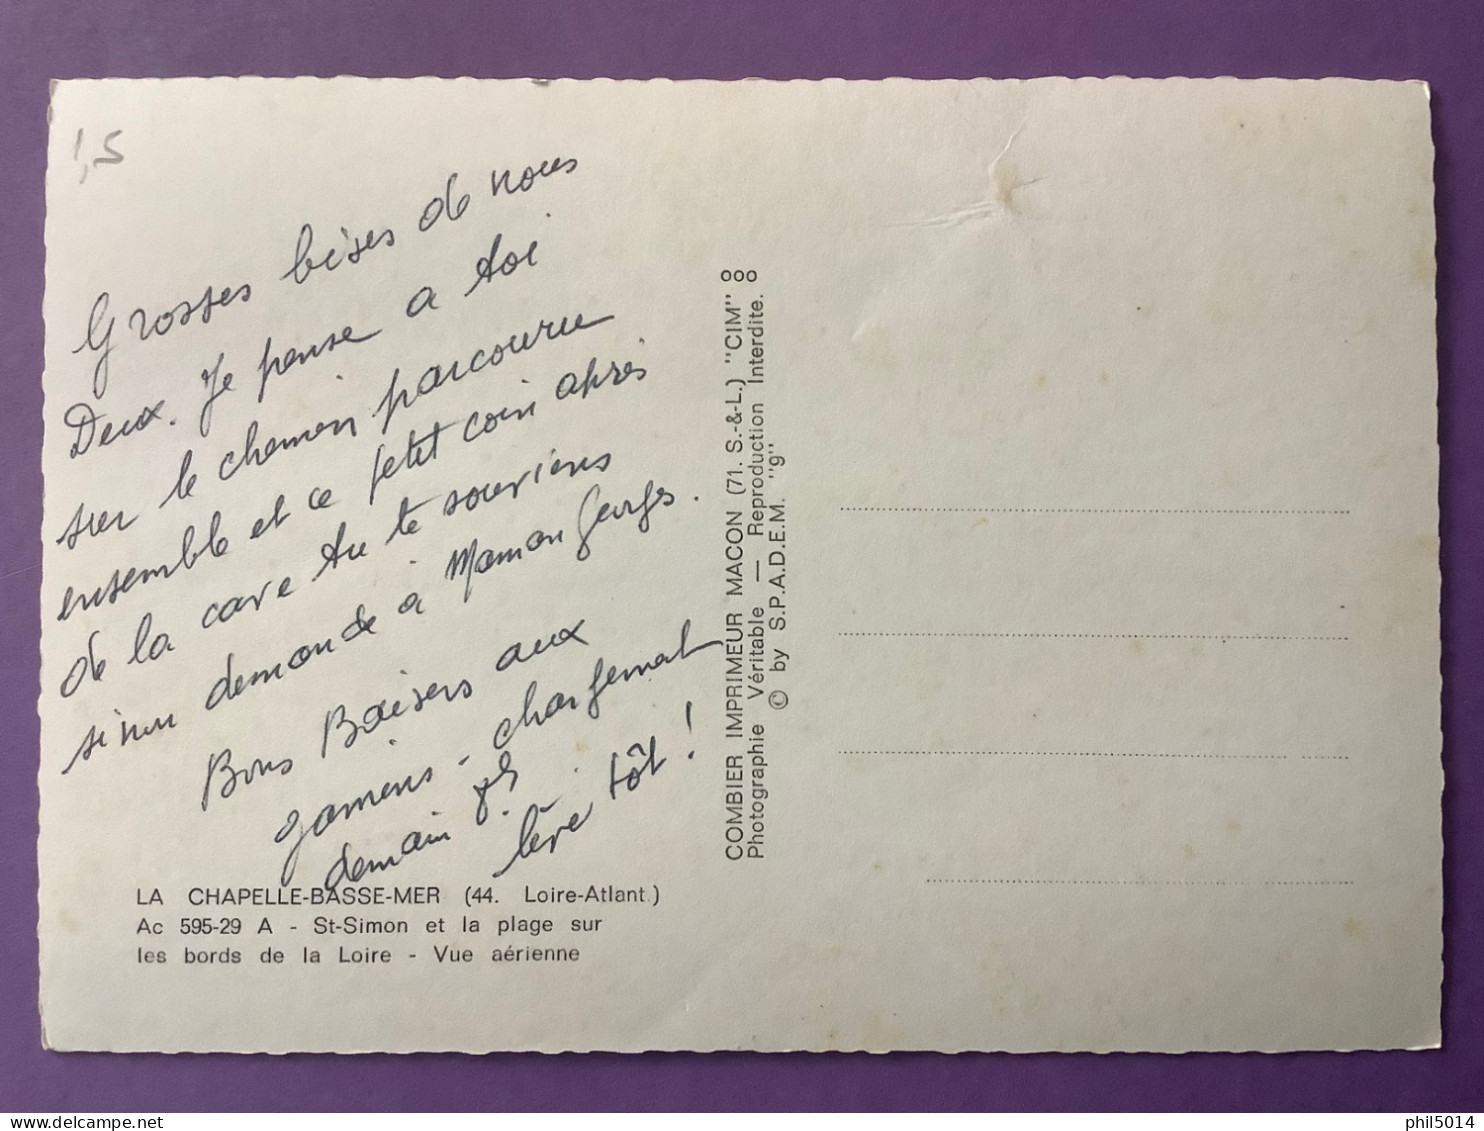 1,5
Grosses bises de nous
Deux. Je pense a toi
sur le chemin parcourue
ensemble et ce petit coin après
de la cave tu te souviens
sinon demande à Maman Georges.
Bons Baisers aux
gamins - chargement
demain
lève tôt !
LA CHAPELLE-BASSE-MER (44. Loire-Atlant.)
Ac 595-29 A - St-Simon et la plage sur
les bords de la Loire - Vue aérienne
COMBIER IMPRIMEUR MACON (71. S.-&-L.) "CIM"
Photographie Véritable — Reproduction Interdite.
© by S.P.A.D.E.M. "9"
phil5014